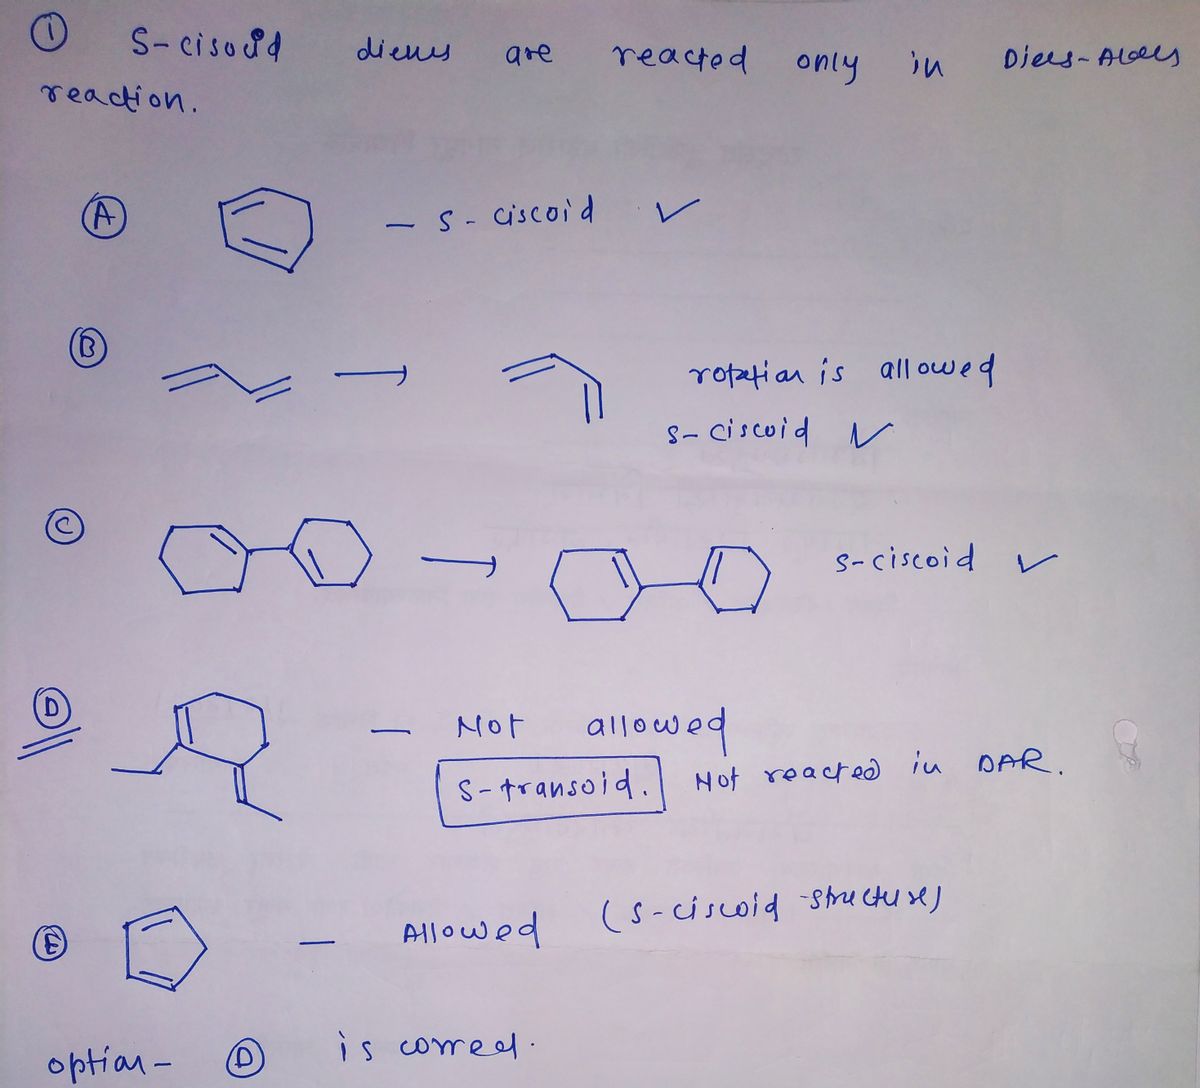 ① S-cisoid dienes are reacted only in Diels-Alders
reaction.
Ⓐ - S-ciscoid ✓
Ⓑ → rotation is allowed
S-ciscoid ✓
Ⓒ → S-ciscoid ✓
Ⓓ - Not allowed
S-transoid. Not reacted in DAR.
Ⓔ - Allowed (S-ciscoid structure)
option- Ⓓ is correct.